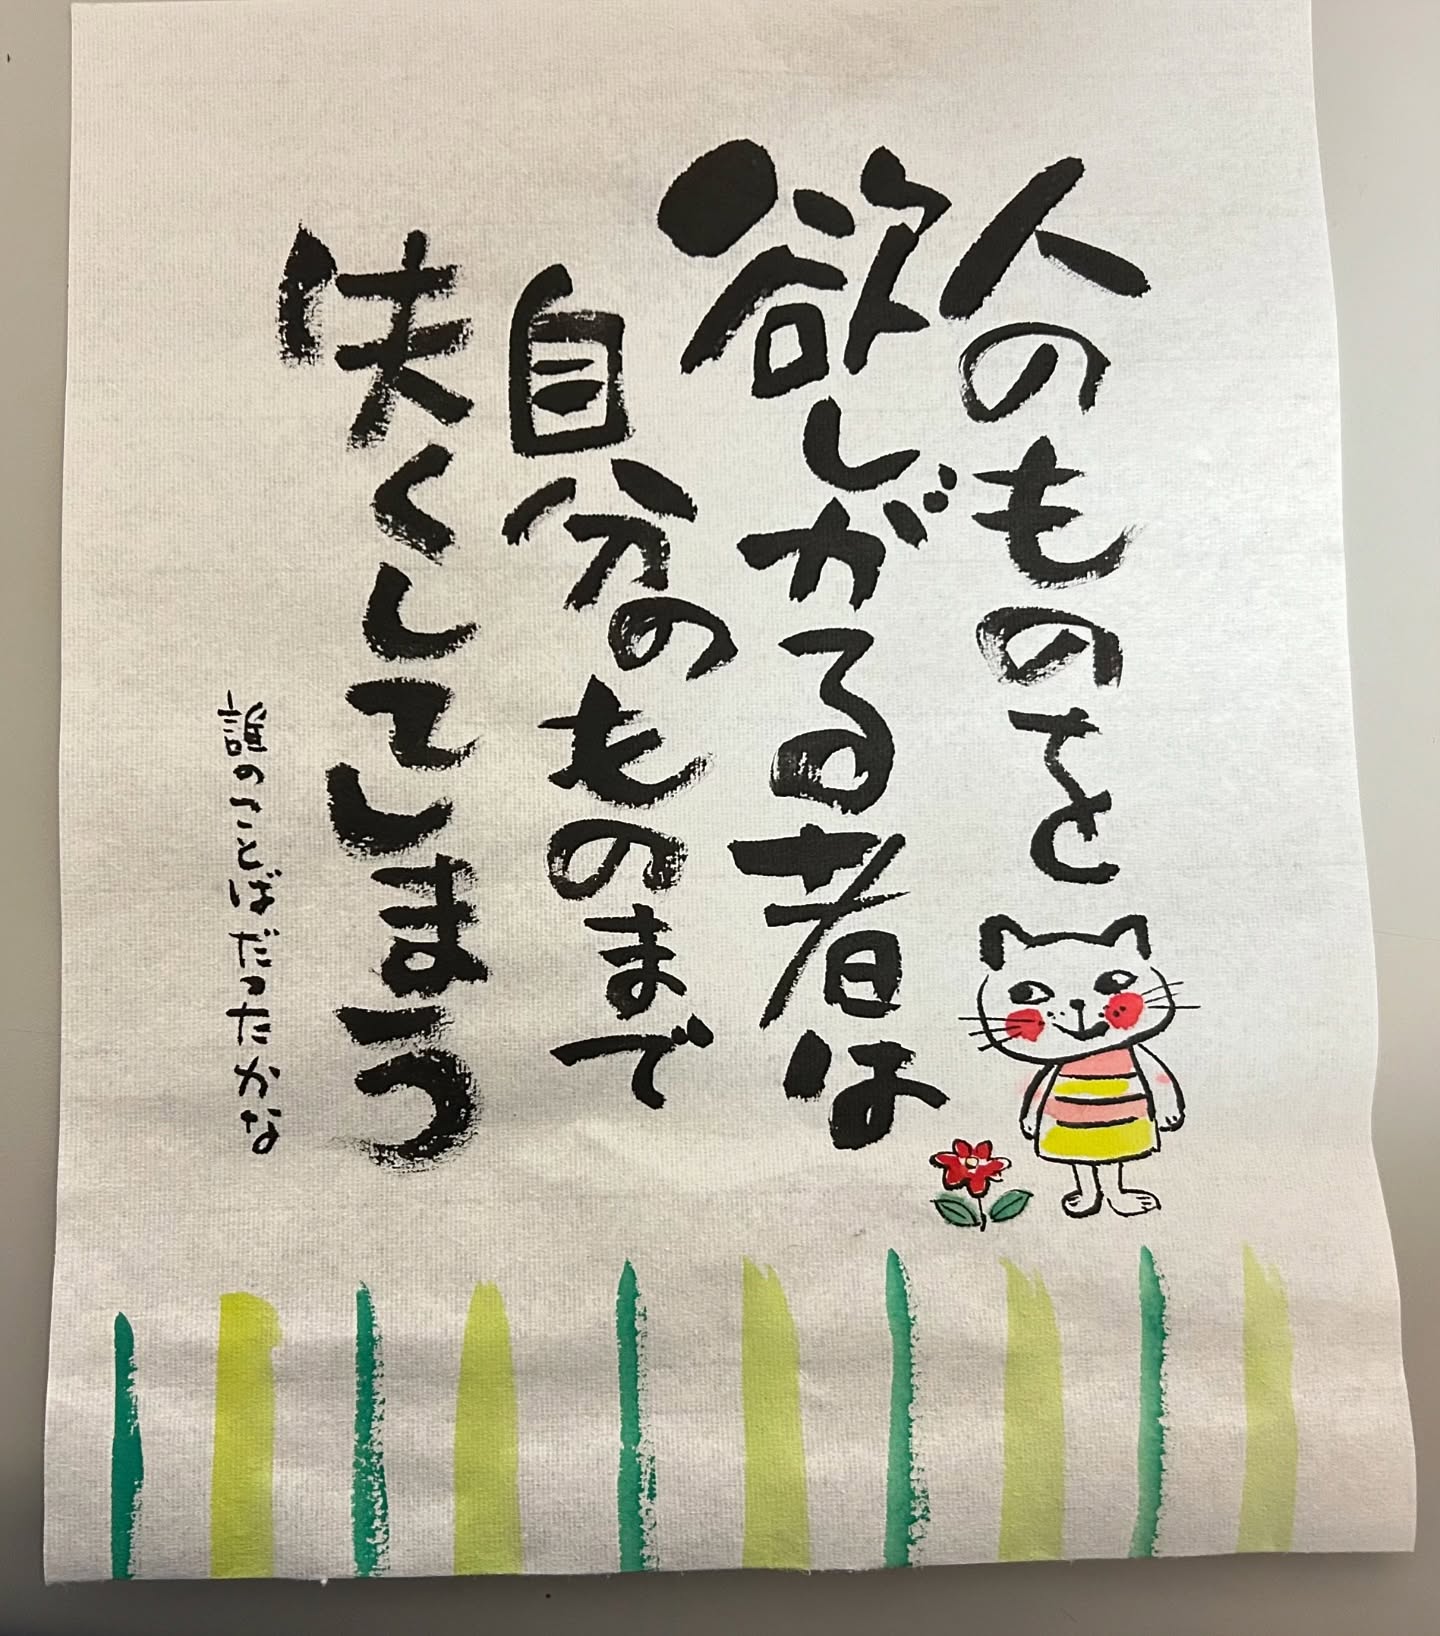 人のものを
欲しがる者は
自分のものまで
失くしてしまう
誰のことばだったかな